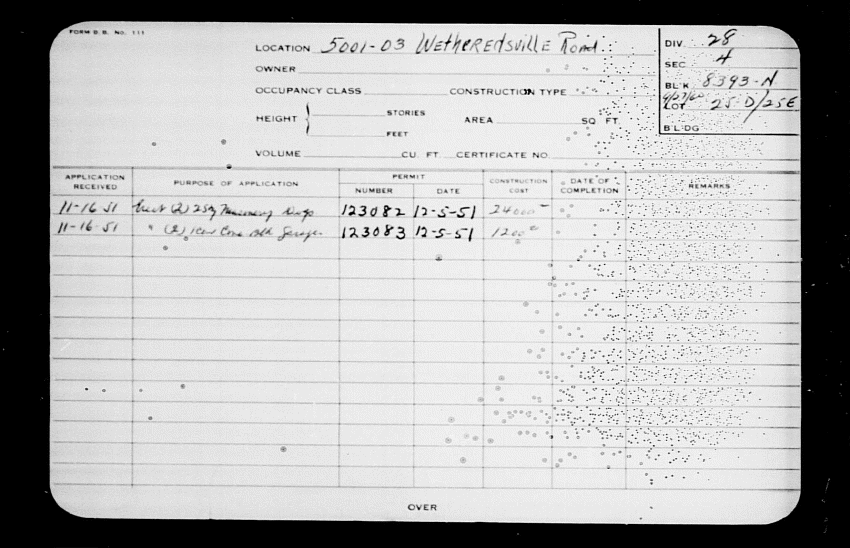 FORM B. B. NO. 111
LOCATION 5001-03 Wetheredsville Road
OWNER
OCCUPANCY CLASS CONSTRUCTION TYPE
HEIGHT STORIES AREA SQ. FT.
FEET
VOLUME CU. FT. CERTIFICATE NO.
DIV. 28
SEC. 4
BL'K 8393-N
LOT 25-D/25E
B'L'DG
APPLICATION RECEIVED PURPOSE OF APPLICATION PERMIT NUMBER DATE CONSTRUCTION COST DATE OF COMPLETION REMARKS
11-16-51 Erect (2) 2 Sty Masonry Dwgs 123082 12-5-51 24000
11-16-51 " (2) 1 Car Conc Blk Garages 123083 12-5-51 1200
OVER